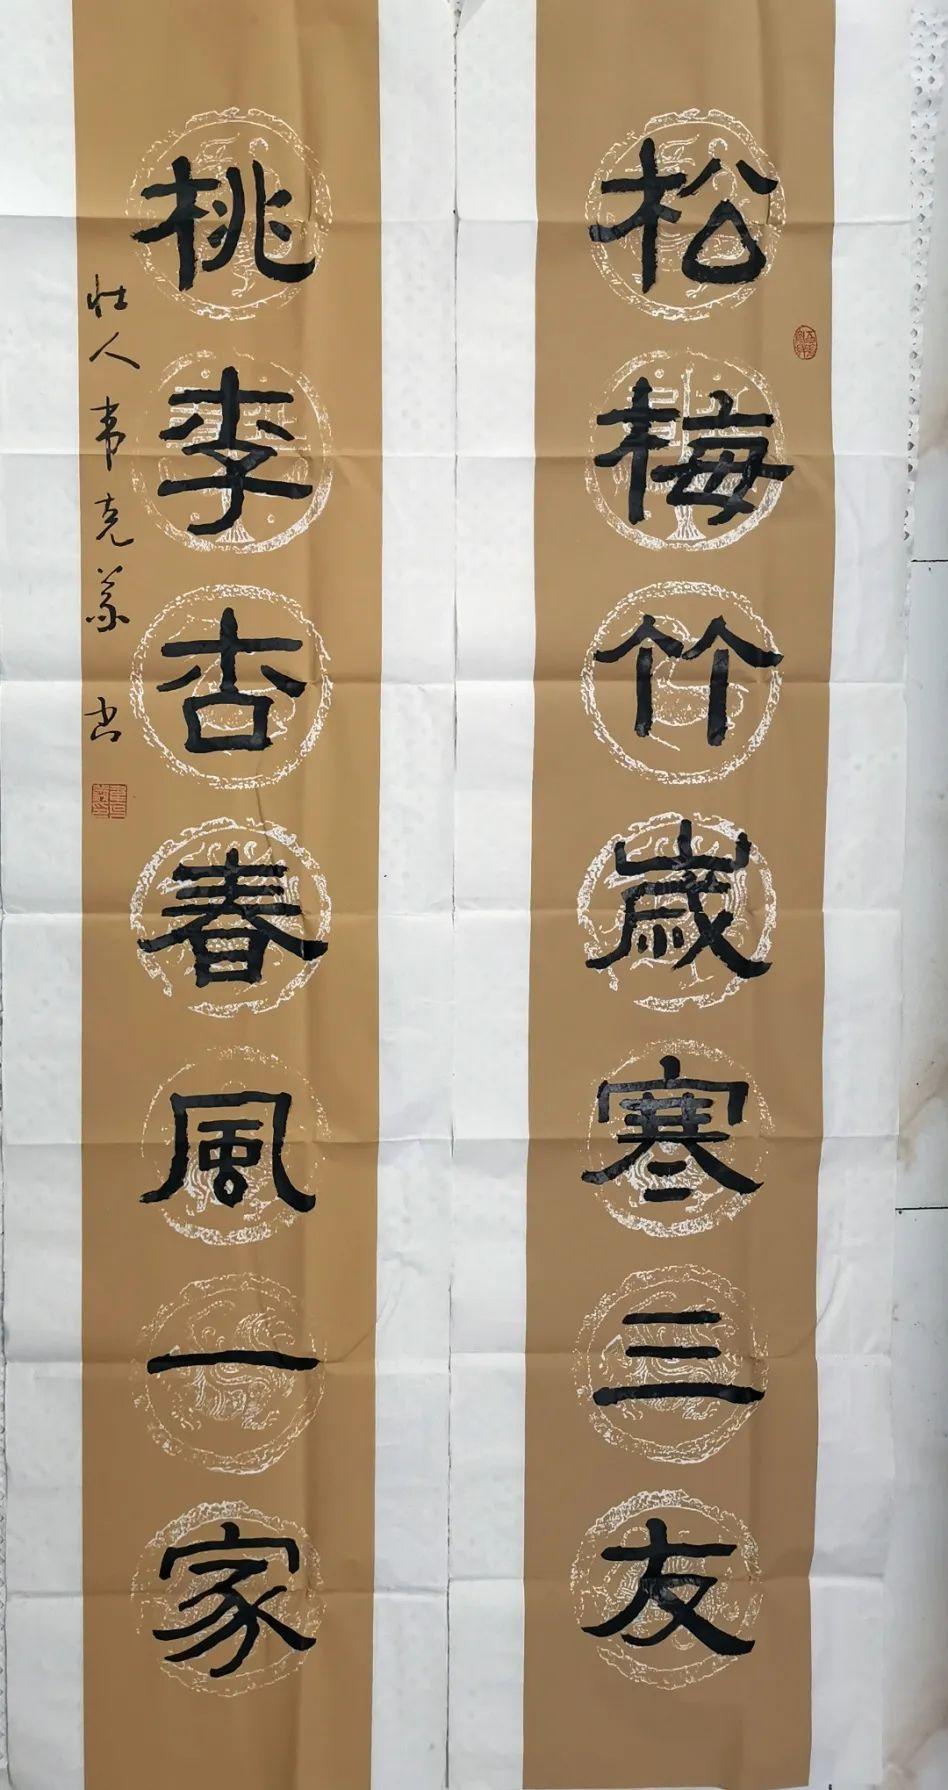 松梅竹歲寒三友
桃李杏春風一家
壮人韦克义书